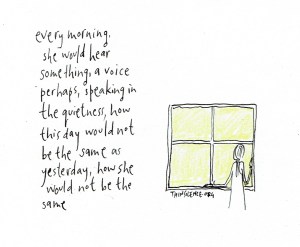 every morning,
she would hear
something, a voice
perhaps, speaking in
the quietness, how
this day would not
be the same as
yesterday, how she
would not be the
same